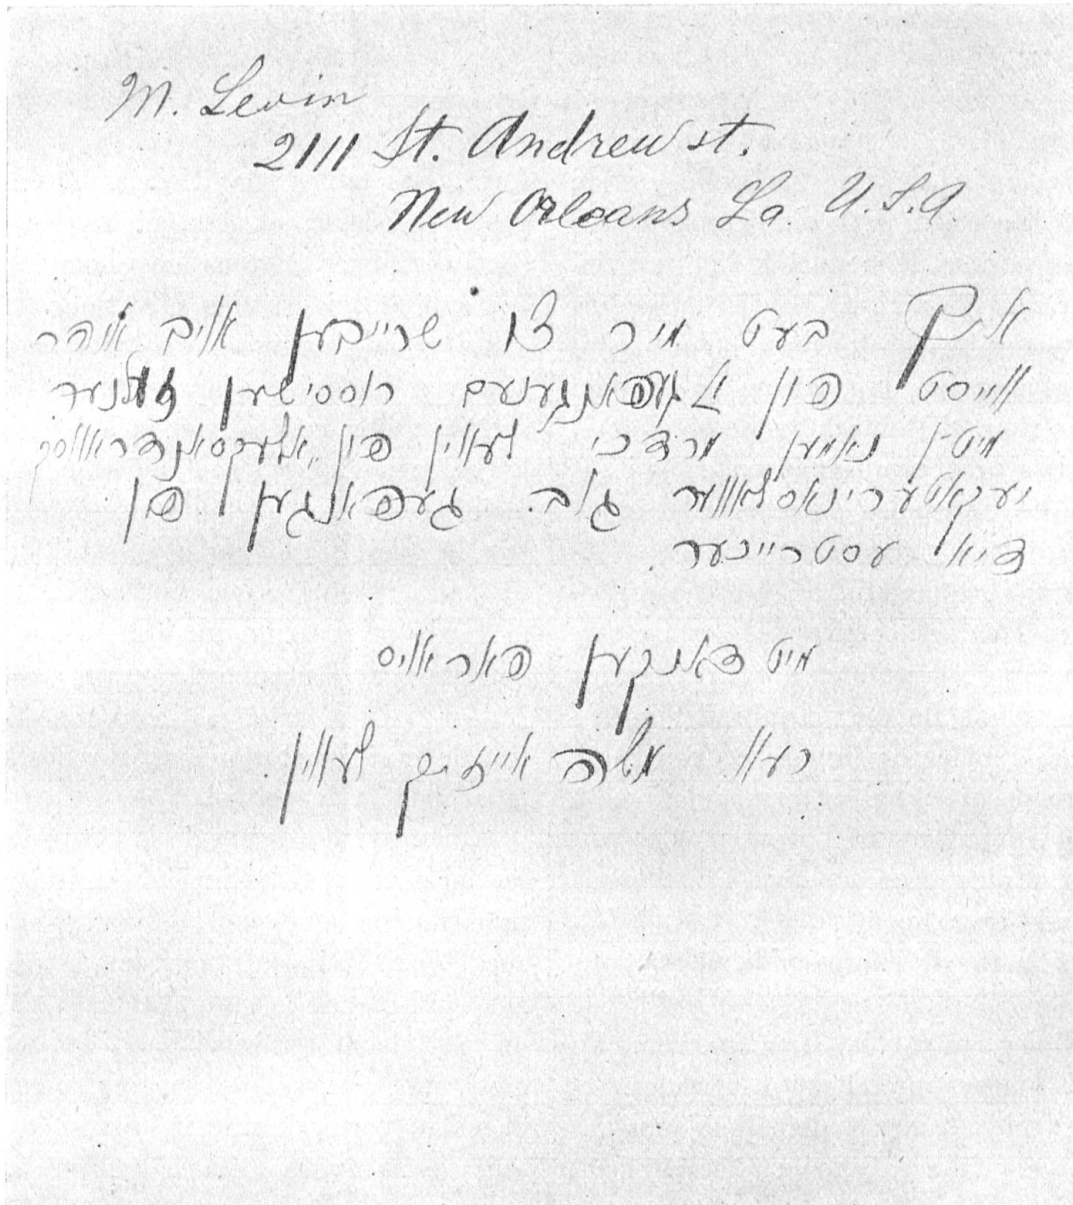 M. Levin
2111 St. Andrew st.
New Orleans La U.S.A
איך בעט מיר צו שרייבען אויב איהר
ווייסט פון א געפאנגענעם רוססישען זעלנער
מיט'ן נאמען מרדכי לעווין פון אלעקסאנדראווסק
יעקאטערינאסלאווער גוב. געפאנגען פון
דיא עסטרייכער.
מיט דאנקען פאראויס
משה אייזיק לעווין